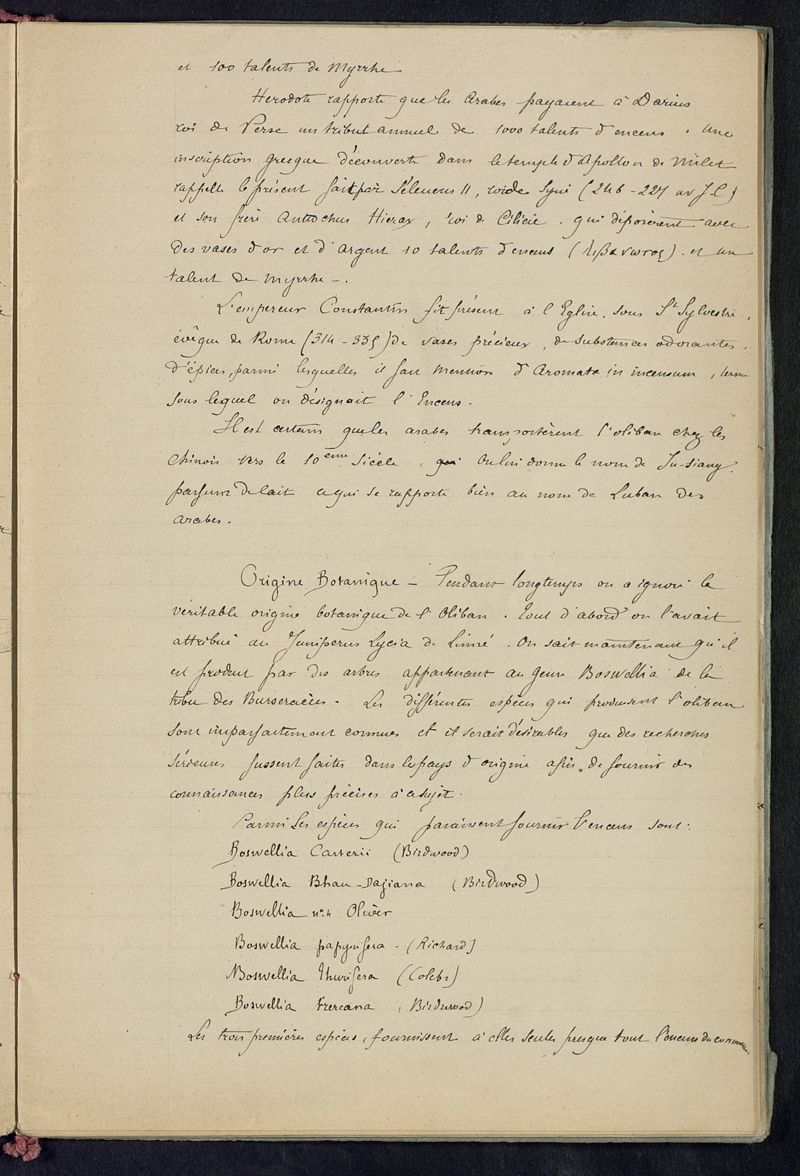 et 100 talents de Myrrhe
Herodote rapporte que les Arabes payaient à Darius
roi de Perse un tribut annuel de 1000 talents d'encens. Une
inscription grecque découverte dans le temple d'Apollon de Milet
rappelle le présent fait par Séleucus II, roi de Syrie (246 - 227 av J.C)
et son frère Antiochus Hierax, roi de Cilicie. qui déposèrent avec
des vases d'or et d'argent 10 talents d'encens (λιβανωτος). et un
talent de myrrhe -.
L'empereur Constantin fit présent à l'Eglise, sous St Sylvestre,
évêque de Rome (314 - 335) de vases précieux, de substances odorantes,
d'épices, parmi lesquelles il fait mention d'Aromata in incensum, terme
sous lequel on désignait l'Encens.
Il est certain que les arabes transportèrent l'oliban chez les
Chinois vers le 10ème siècle, qui On lui donne le nom de Ju-siang,
parfum de lait ce qui se rapporte bien au nom de Luban des
arabes.
Origine Botanique - Pendant longtemps on a ignoré la
véritable origine botanique de l'Oliban. Tout d'abord on l'avait
attribué au Juniperus Lycia de Linné. On sait maintenant qu'il
est produit par des arbres appartenant au genre Boswellia de la
tribu des Burseracées. Les différentes espèces qui produisent l'oliban
sont imparfaitement connues et il serait désirables que des recherches
sérieuses fussent faites dans le pays d'origine afin de fournir des
connaissances plus précises à ce sujet.
Parmi les espèces qui paraissent fournir l'encens sont:
Boswellia Carterii (Birdwood)
Boswellia Bhau-Dajiana (Birdwood)
Boswellia n° 4 Oliver
Boswellia papyrifera - (Richard)
Boswellia Thurifera (Colebr)
Boswellia Frereana (Birdwood)
Les trois premières espèces, fournissent à elles seules presque tout l'encens du